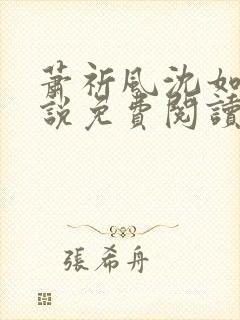 蕭祈風沈如
說免費閱讀
張希舟